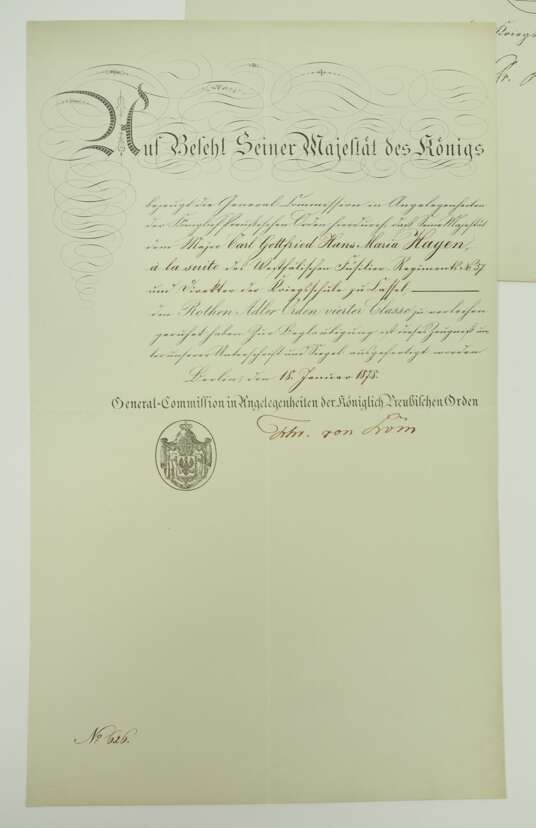 Auf Befehl Seiner Majestät des Königs
bezeugt die General-Commission in Angelegenheiten
der Königlich Preußischen Orden hierdurch, daß Seine Majestät
dem Major Carl Gottfried Hans Maria Hagen,
à la suite des Westfälischen Füsilier Regiments № 37
und Direktor der Kriegsschule zu Cassel
den Rothen Adler Orden vierter Classe zu verleihen
geruhet haben. Zur Beglaubigung ist dieses Zeugniß un-
ter unserer Unterschrift und Siegel ausgefertigt worden.
Berlin, den 18. Januar 1878.
General-Commission in Angelegenheiten der Königlich Preußischen Orden
Frhr. von
№ 626.
Kriegs